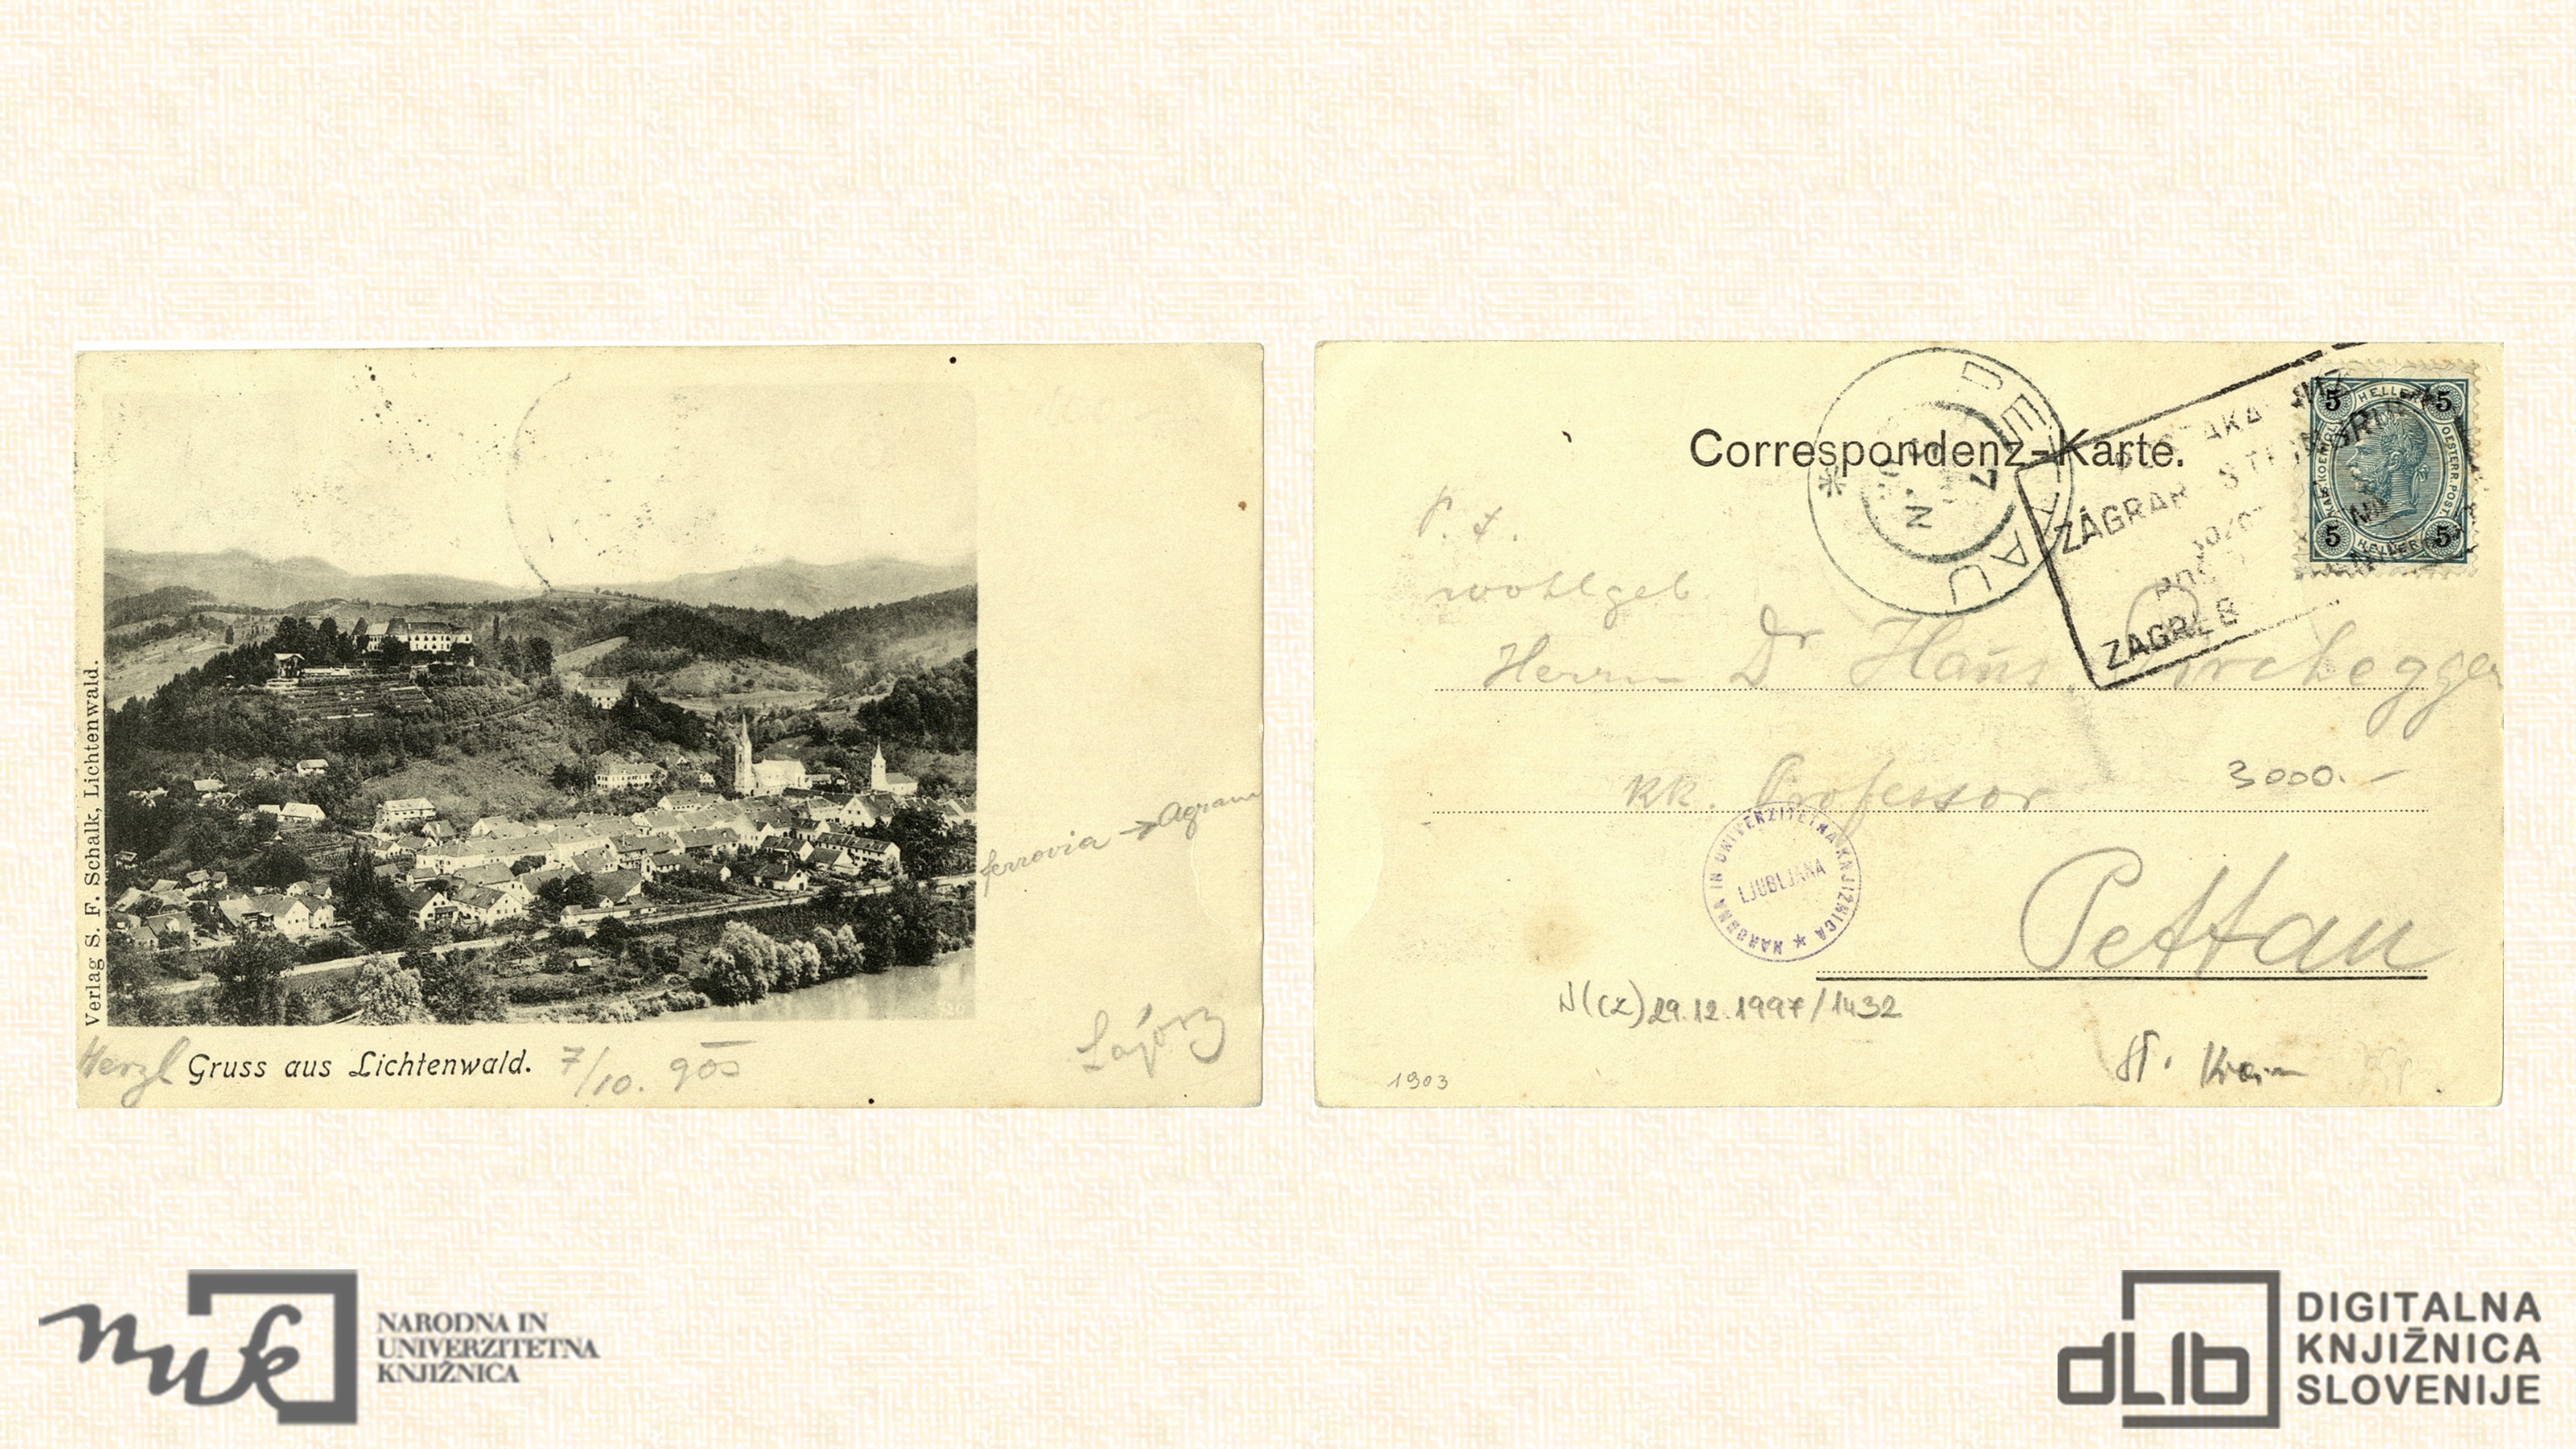 Verlag S. F. Schalk, Lichtenwald.
ferrovia → Agram
Herzl Gruss aus Lichtenwald. 7/10. 903
Correspondenz-Karte.
PETTAU
7
ZÁGRÁB
ZAGREB
5 HELLER 5
5 HELLER 5
P. t.
wohlgeb.
Herrn Dr Hans Pirchegger
kk. Professor
3000.-
Pettau
NARODNA IN UNIVERZITETNA KNJIŽNICA
LJUBLJANA
N(cz) 29.12.1997/1432
1903
St. Krain
nuk
NARODNA IN
UNIVERZITETNA
KNJIŽNICA
dLib
DIGITALNA
KNJIŽNICA
SLOVENIJE